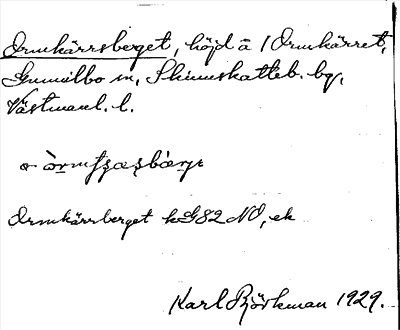 Ormkärrsberget, höjd å / Ormkärret,
Gunnilbo sn, Skinnskatteb. bg,
Västmanl. l.
Ormkärrberget kG82 NO, ek
Karl Björkman 1929.